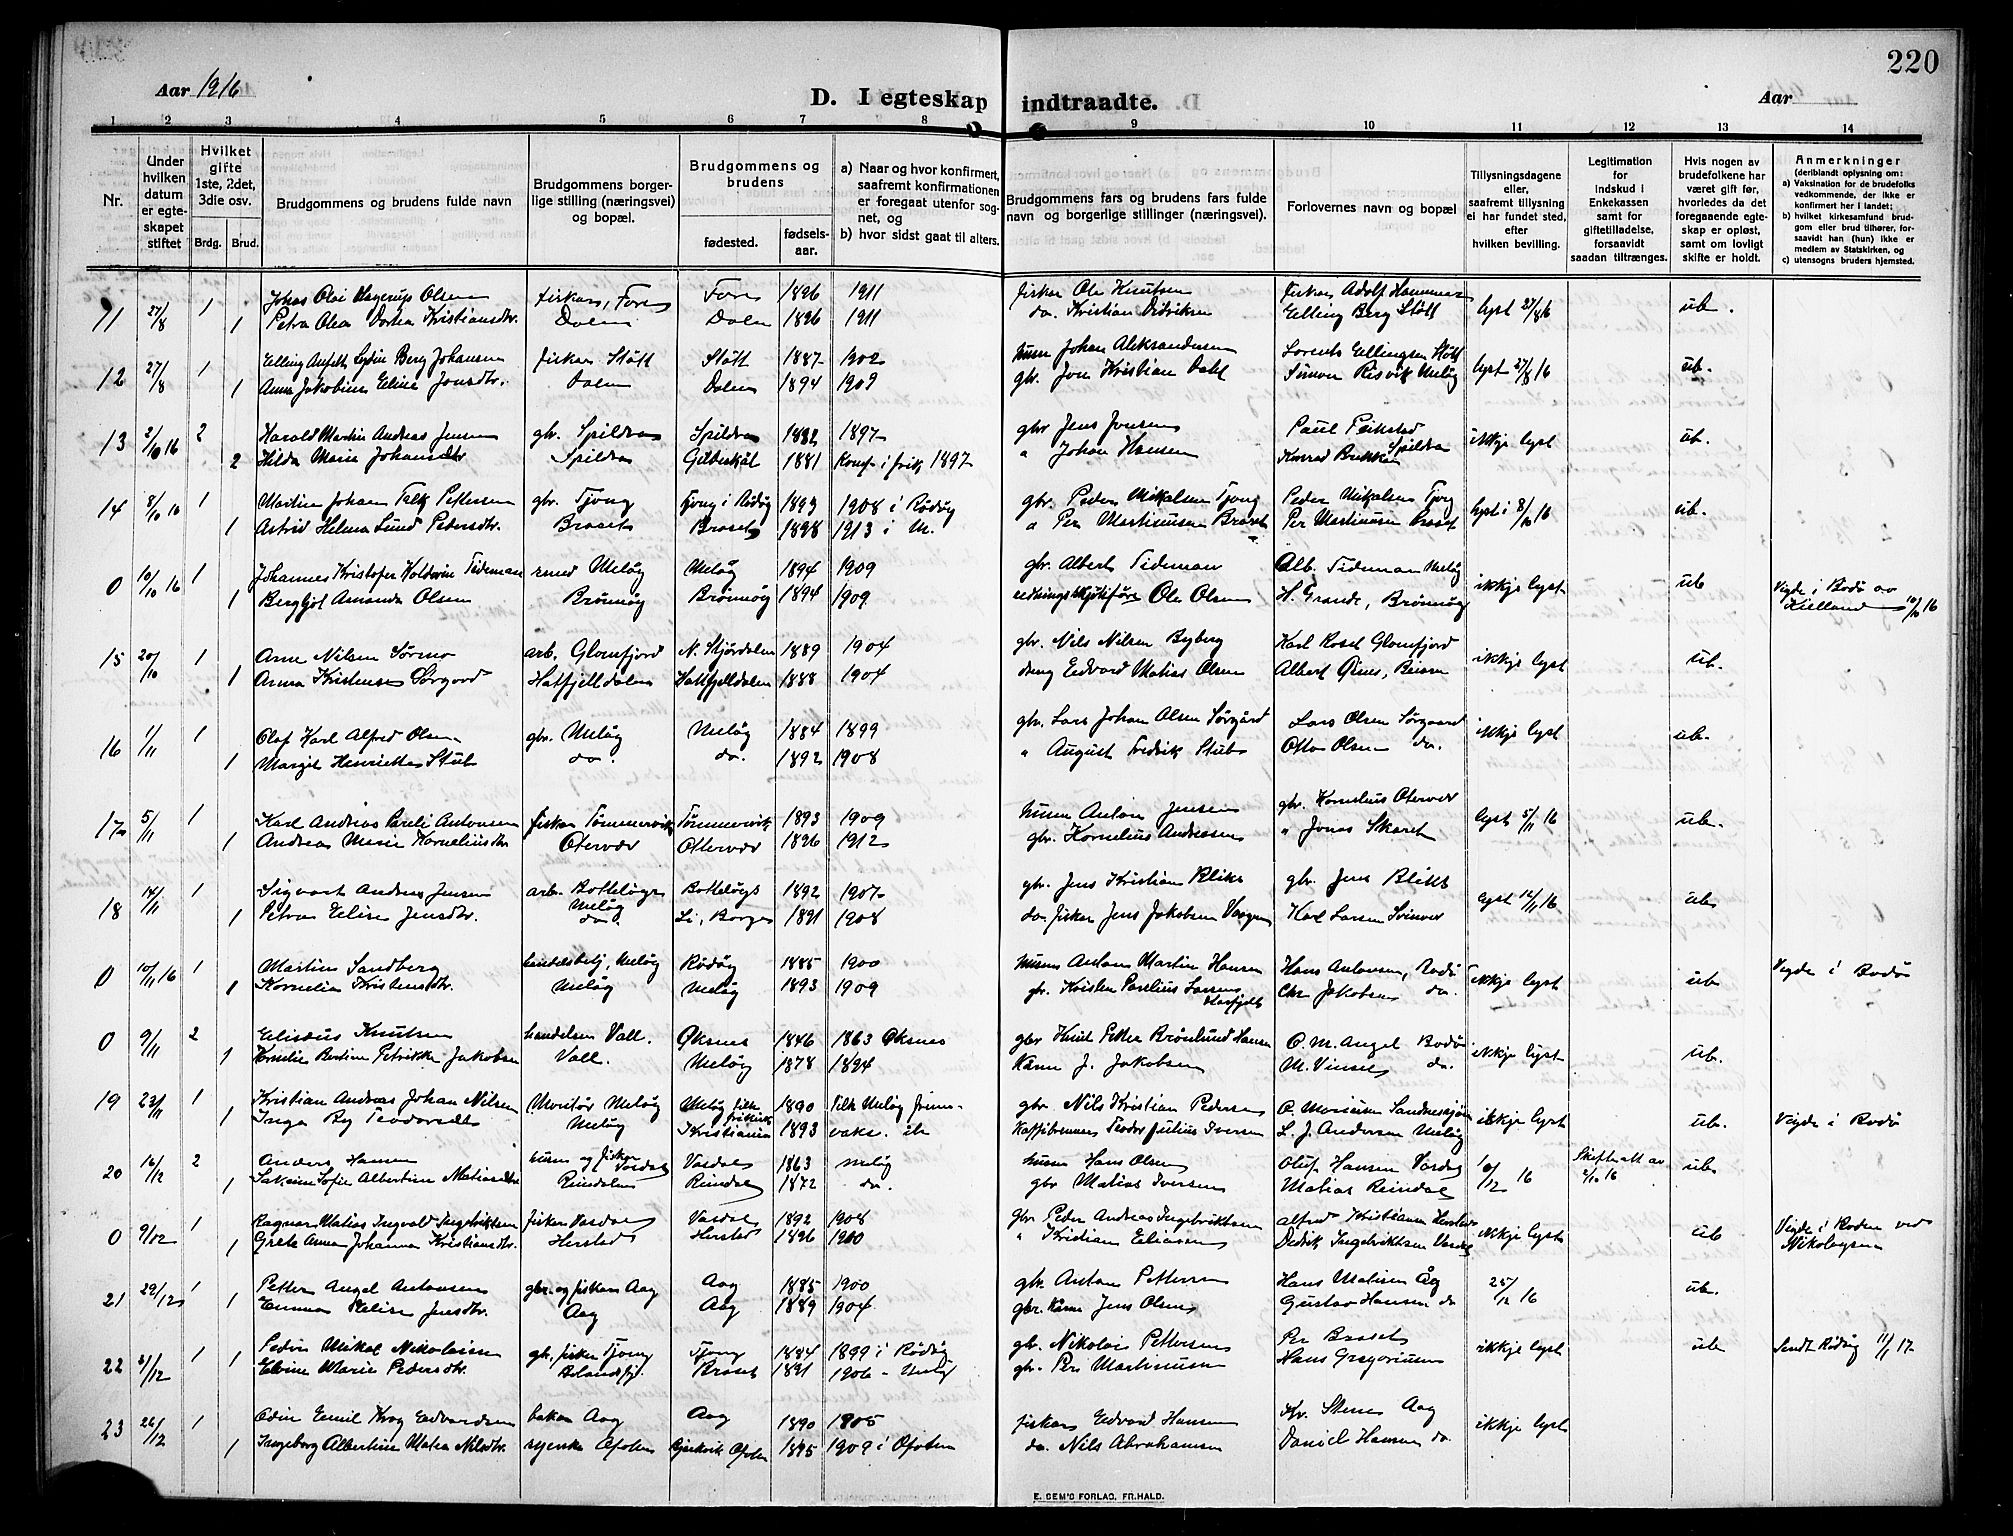 220
Aar 1916
D. I egteskap indtraadte.
Aar
1 2 3 4 5 6 7 8 9 10 11 12 13 14
Nr.
Under hvilken datum er egteskapet stiftet
Hvilket gifte 1ste, 2det, 3die osv.
Brdg. Brud.
Brudgommens og brudens fulde navn
Brudgommens borgerlige stilling (næringsvei) og bopæl.
Brudgommens og brudens
fødested. fødselsaar.
a) Naar og hvor konfirmert, saafremt konfirmationen er foregaat utenfor sognet, og
b) hvor sidst gaat til alters.
Brudgommens fars og brudens fars fulde navn og borgerlige stillinger (næringsvei).
Forlovernes navn og bopæl
Tillysningsdagene eller, saafremt tillysning ei har fundet sted, efter hvilken bevilling.
Legitimation for indskud i Enkekassen samt for giftetilladelse, forsaavidt saadan tiltrænges.
Hvis nogen av brudefolkene har været gift før, hvorledes da det foregaaende egteskap er opløst, samt om lovligt skifte er holdt.
Anmerkninger (deriblandt oplysning om:
a) Vaksination for de brudefolks vedkommende, der ikke er konfirmert her i landet;
b) hvilket kirkesamfund brudgom eller brud tilhører, forsaavidt han (hun) ikke er medlem av Statskirken, og
c) utensogns bruders hjemsted.
11 27/8 1 Johas Olai Hagerup Olsen fiskar, Fore Fore 1896 1911 fiskar Ole Knutsen fiskar Adolf Hammer lyst 27/8 16 ub.
1 Petra Olea Dorthea Kristiansdtr. Dalen Dalen 1896 1911 do. Kristian Didriksen Elling Berg Støtt
12 27/8 1 Elling Anfelt Lydin Berg Johansen fiskar Støtt Støtt 1887 1902 husm Johan Aleksandersen Lorents Ellingsen Støtt lyst 27/8 16 ub.
1 Anna Jakobine Eline Jonsdtr. Dalen Dalen 1894 1909 gbr. Jon Kristian Dahl Simon Risvik Meløy
13 2/10 16 2 Harald Martin Andreas Jensen gbr. Spildra Spildra 1882 1897 gbr Jens Jensen Paul Peikstad ikkje lyst ub.
2 Hilda Marie Johansdtr Spildra Gildeskål 1881 Konf. i frik 1897 " Johan Hansen Konrad Brekke Spildra
14 8/10 16 1 Martin Johan Falk Pettersen gbr. Tjong Tjong i Rødøy 1893 1908 i Rødøy gbr. Peder Mikalsen Tjong Peder Mikalsen Tjong lyst i 8/10 16 ub.
1 Astrid Helma Lund Pedersdtr. Braset Braset 1898 1913 i M. " Per Martinussen Braset Per Martinussen Braset
0 10/10 16 1 Johannes Kristofer Holdorin Tideman Meløy Meløy 1894 1909 gbr. Albert Tideman Alb. Tideman Meløy ikkje lyst ub Vigde i Bodø av
1 Bergljot Amanda Olsen Brønnøy Brønnøy 1894 1909 redningsskjøitefører Ole Olsen H. Grande, Brønnøy Kielland 10/10 16
15 20/10 1 Arne Nilsen Sørmo arb. Glomfjord N. Stjørdalen 1889 1904 gbr. Nils Nilsen Byberg Karl Rosel Glomfjord ikkje lyst ub.
1 Anna Kristense Sørgård Hatfjelldalen Hatfjelldalen 1888 1904 Edvard Matias Olsen Albert Osnes, Beiarn
16 1/11 1 Olaf Karl Alfred Olsen gbr. Meløy Meløy 1884 1899 gbr. Lars Johan Olsen Sørgård Lars Olsen Sørgaard ikkje lyst ub.
1 Margit Henriette Stub do. do. 1892 1908 " August Fredrik Stub Otto Olsen do.
17 5/11 1 Karl Andreas Pareli Antonsen fiskar Tømmervik Tømmervik 1893 1909 husm Anton Jensen gbr. Kornelius Otervær lyst 5/11 16 ub.
1 Andrea Marie Korneliusdtr Otervær Ottervær 1896 1912 gbr. Kornelius Andreasen " Jonas Skaret
18 14/11 1 Sigvart Andreas Jensen arb. Bolleløyr Meløy 1892 1907 gbr. Jens Kristian Bliks gbr. Jens Bliks lyst 12/11 16 ub
1 Petra Elise Jensdtr. do. Li, Borge 1891 1908 do. fiskar Jens Jakobsen Karl Larsen Svinvær
0 10/11 16 1 Martin Sandberg handelsbetj, Meløy Rødøy 1885 1900 husm Anton Martin Hansen Hans Antonsen, Bodø ikkje lyst ub Vigde i Bodø
1 Kornelia Kristensdtr. Meløy Meløy 1893 1909 gbr. Kristen Parelius Larsen Chr Jakobsen do.
0 9/11 2 Elisæus Knutsen handelsm Vall. Øksnes 1846 1863 Øksnes gbr Knut Petter Brønlund Hansen O. M. Angel Bodø ikkje lyst ub.
1 Kornelie Bertine Petrikke Jakobsen Vall. Meløy 1878 1894 Kårm J. Jakobsen M. Vinse do.
19 23/11 1 Kristian Andreas Johan Nilsen Montør Meløy Meløy 1890 gbr Nils Kristian Pedersen ikkje lyst ub. Vigde i Bodø
1 Inga By Teodorsdtr Meløy Kristiania 1893 vaks. Kaffibrenner Teodor Julius Iversen L. J. Andersen Meløy
20 16/12 2 Anders Hansen husm og fisker Vasdal Vasdal 1863 Meløy husm Hans Olsen Oluf Hansen Vasdal 10/12 16 Skifteatt av 2/10 16 ub
1 Sofie Albertine Matiasdtr Reindalen Reindal 1872 do. gbr Matias Iversen Matias Reindal
0 9/12 1 Ragnar Matias Ingvald Ingebriktsen fiskar Vasdal Vasdal 1892 1908 gbr Peder Andreas Ingebriktsen Alfred Kristiansen Herstad ikkje lyst ub Vigde i Bodin ved
1 Grete Anna Johanna Kristiansdtr. Herstad Herstad 1896 1910 " Kristian Eliassen Dedrik Ingebriktsen Vasdal Nikolaysen
21 29/12 1 Petter Angel Antonsen gbr. og fiskar Aag Aag 1885 1900 gbr. Anton Pettersen Hans Matisen Åg 25/12 16 ub.
1 Emma Elise Jensdtr. Aag Aag 1889 1904 gbr. Kårm Jens Olsen Gustav Hansen do
22 1/12 1 1 Peder Mikal Nikolaisen gbr, fisker Tjong Tjong 1884 1899 i Rødøy gbr. Nikolai Pettersen Per Braset ikkje lyst ub Sendt Rødøy 11/1 17
Elvine Marie Pedersdtr. Bolandsfj. Braset 1891 1906 - Meløy gbr. Per Martinussen Hans Gregoriussen
23 26/12 1 Odin Emil Krog Edvardsen bakar Aag Aag 1890 1905 fiskar Edvard Hansen Kr. Stense Aag ikkje lyst
1 Ingeborg Albertine Matea Nilsdtr. syerske Ofoten Bjerkvik Ofoten 1895 1909 i Ofoten do. Nils Abrahamsen Daniel Hansen do
E. SEM'S FORLAG, FR.HALD.